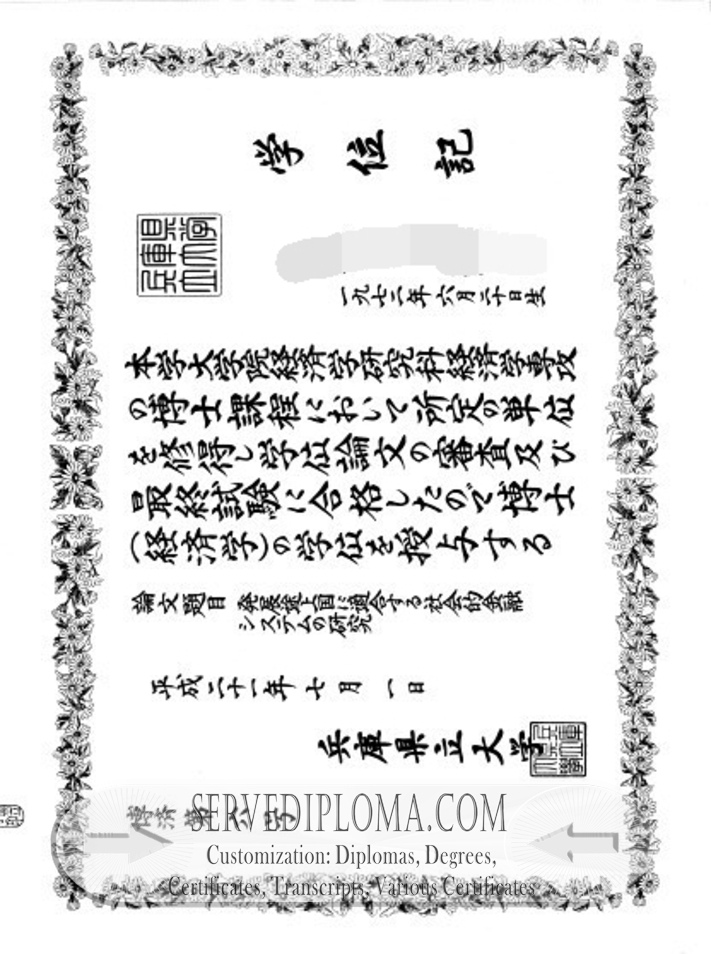 学位記
兵庫県立大学
一九七二年六月二十日生
本学大学院経済学研究科経済学専攻
の博士課程において所定の単位
を修得し学位論文の審査及び
最終試験に合格したので博士
(経済学)の学位を授与する
論文題目 発展途上国に適合する社会的金融
システムの研究
平成二十一年七月一日
兵庫県立大学
博済第六号
SERVEDIPLOMA.COM
Customization: Diplomas, Degrees,
Certificates, Transcripts, Various Certificates